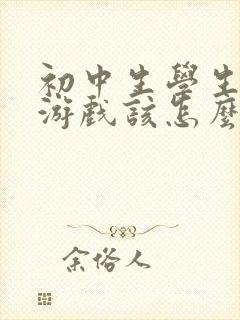 初中生學生
游戲該怎麼
余俗人